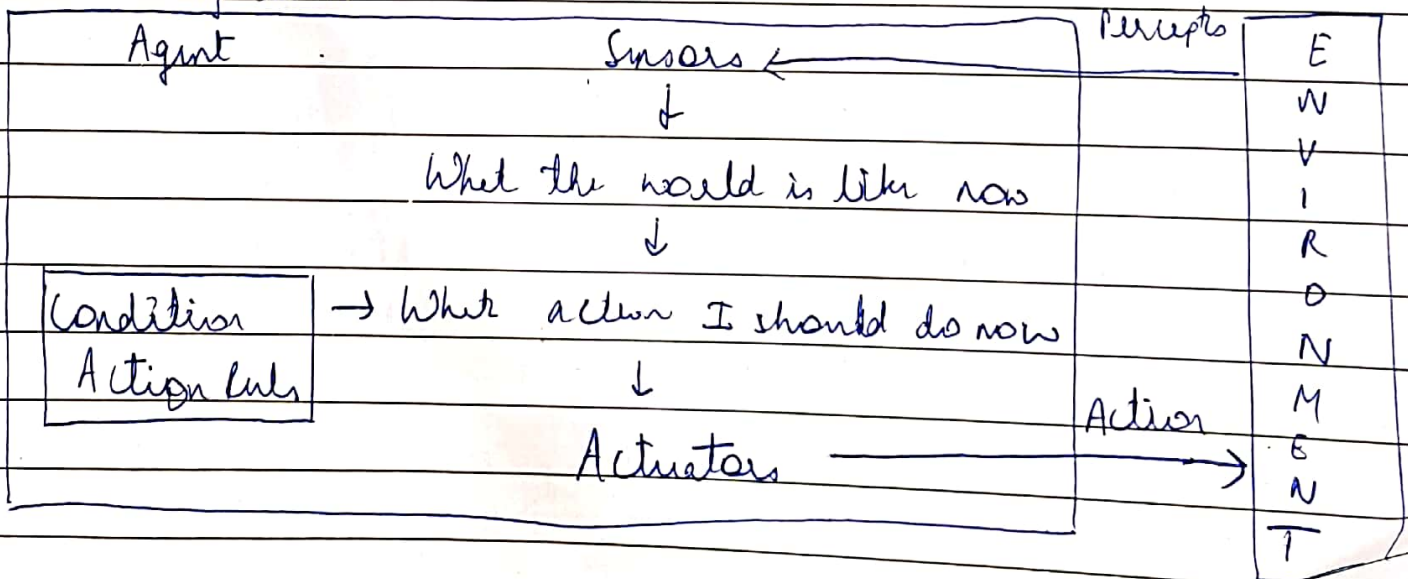 Agent
Sensors
Percepts
What the world is like now
Condition
Action Rules
→ What action I should do now
Actuators
Action
E
N
V
I
R
O
N
M
E
N
T